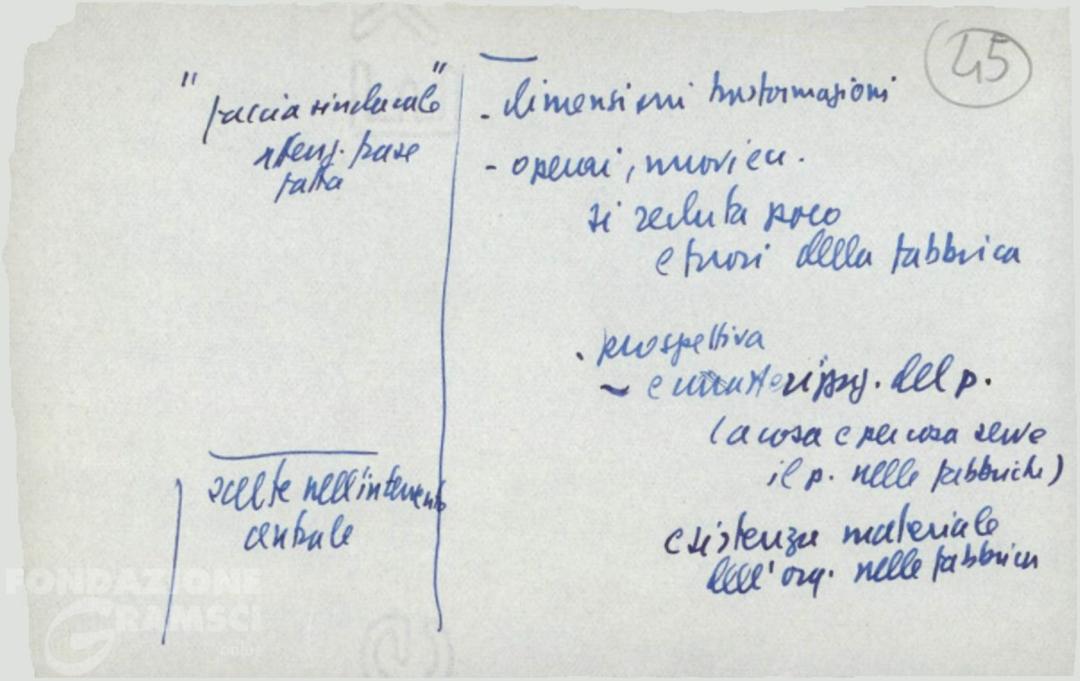 45
"faccia sindacale"
base
fatta
scelte nell'intervento
centrale
- dimensioni trasformazioni
- operai,
si recluta poco
e fuori della fabbrica
. prospettiva
del p.
(a cosa e per cosa serve
il p. nelle fabbriche)
esistenza materiale
dell'org. nelle fabbrica
FONDAZIONE
GRAMSCI
onlus